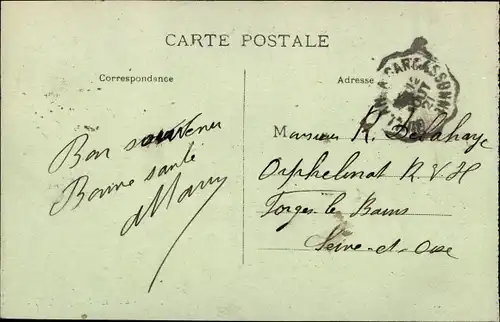 CARTE POSTALE
Correspondance
Adresse
A CARCASSONNE
Bon souvenir
Bonne santé
Monsieur R. Delahaye
Orphelinat R V H
Forges-les Bains
Seine-et-Oise